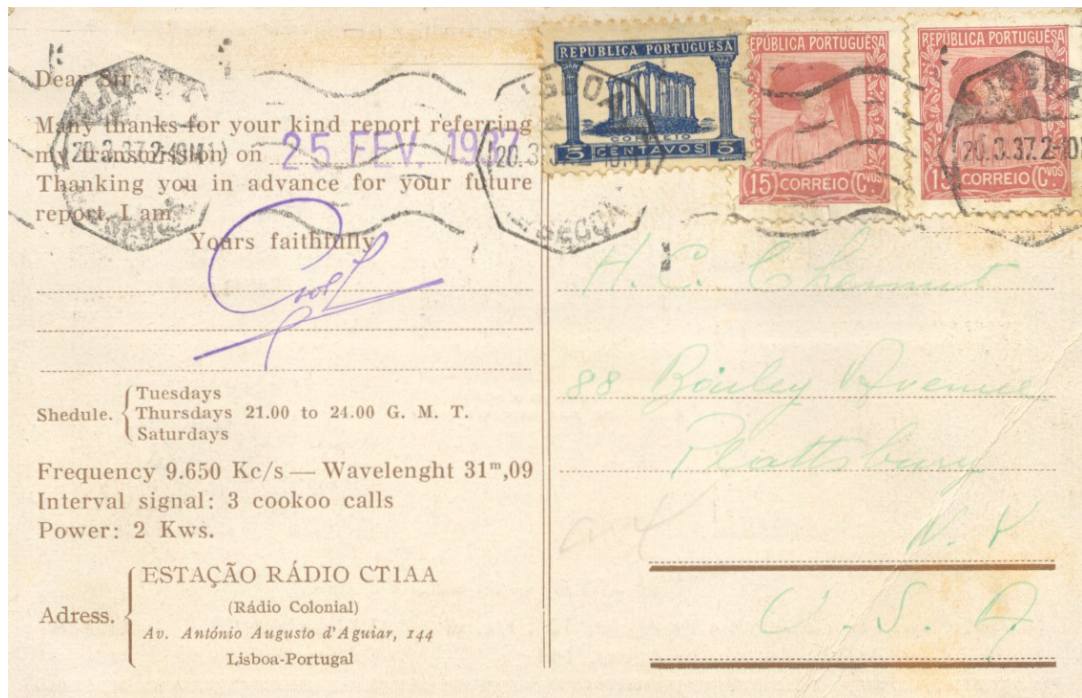 Dear Sir
Many thanks for your kind report referring
my transmission on 25 FEV. 1937
Thanking you in advance for your future
report, I am,
Yours faithfully
Shedule. Tuesdays
Thursdays 21.00 to 24.00 G. M. T.
Saturdays
Frequency 9.650 Kc/s — Wavelenght 31ᵐ,09
Interval signal: 3 cookoo calls
Power: 2 Kws.
Adress. ESTAÇÃO RÁDIO CT1AA
(Rádio Colonial)
Av. António Augusto d'Aguiar, 144
Lisboa-Portugal
REPUBLICA PORTUGUESA
CORREIO
5 CENTAVOS 5
REPÚBLICA PORTUGUESA
15 CORREIO CVOS
REPÚBLICA PORTUGUESA
15 CORREIO CVOS
20.3.37.2-10
20.3.37.2-10
H. C.
88 Bailey Avenue
Plattsburg
N. Y
U. S. A